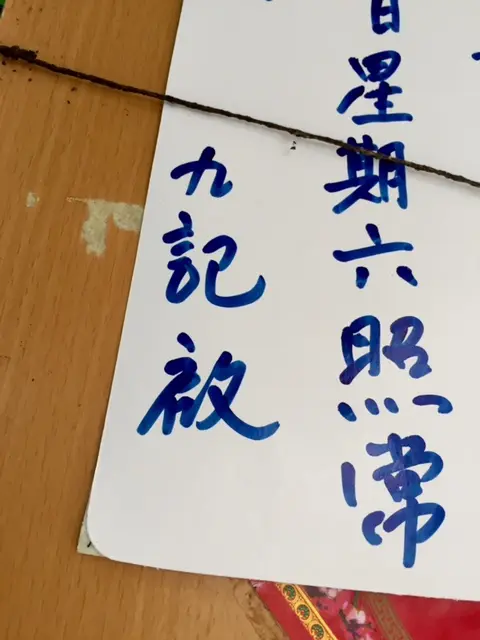 日星期六照常
九記啟